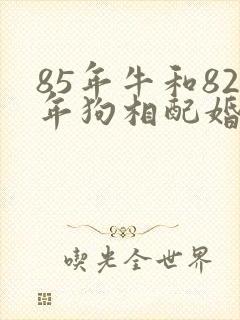 85年牛和82
年狗相配婚
喫光全世界